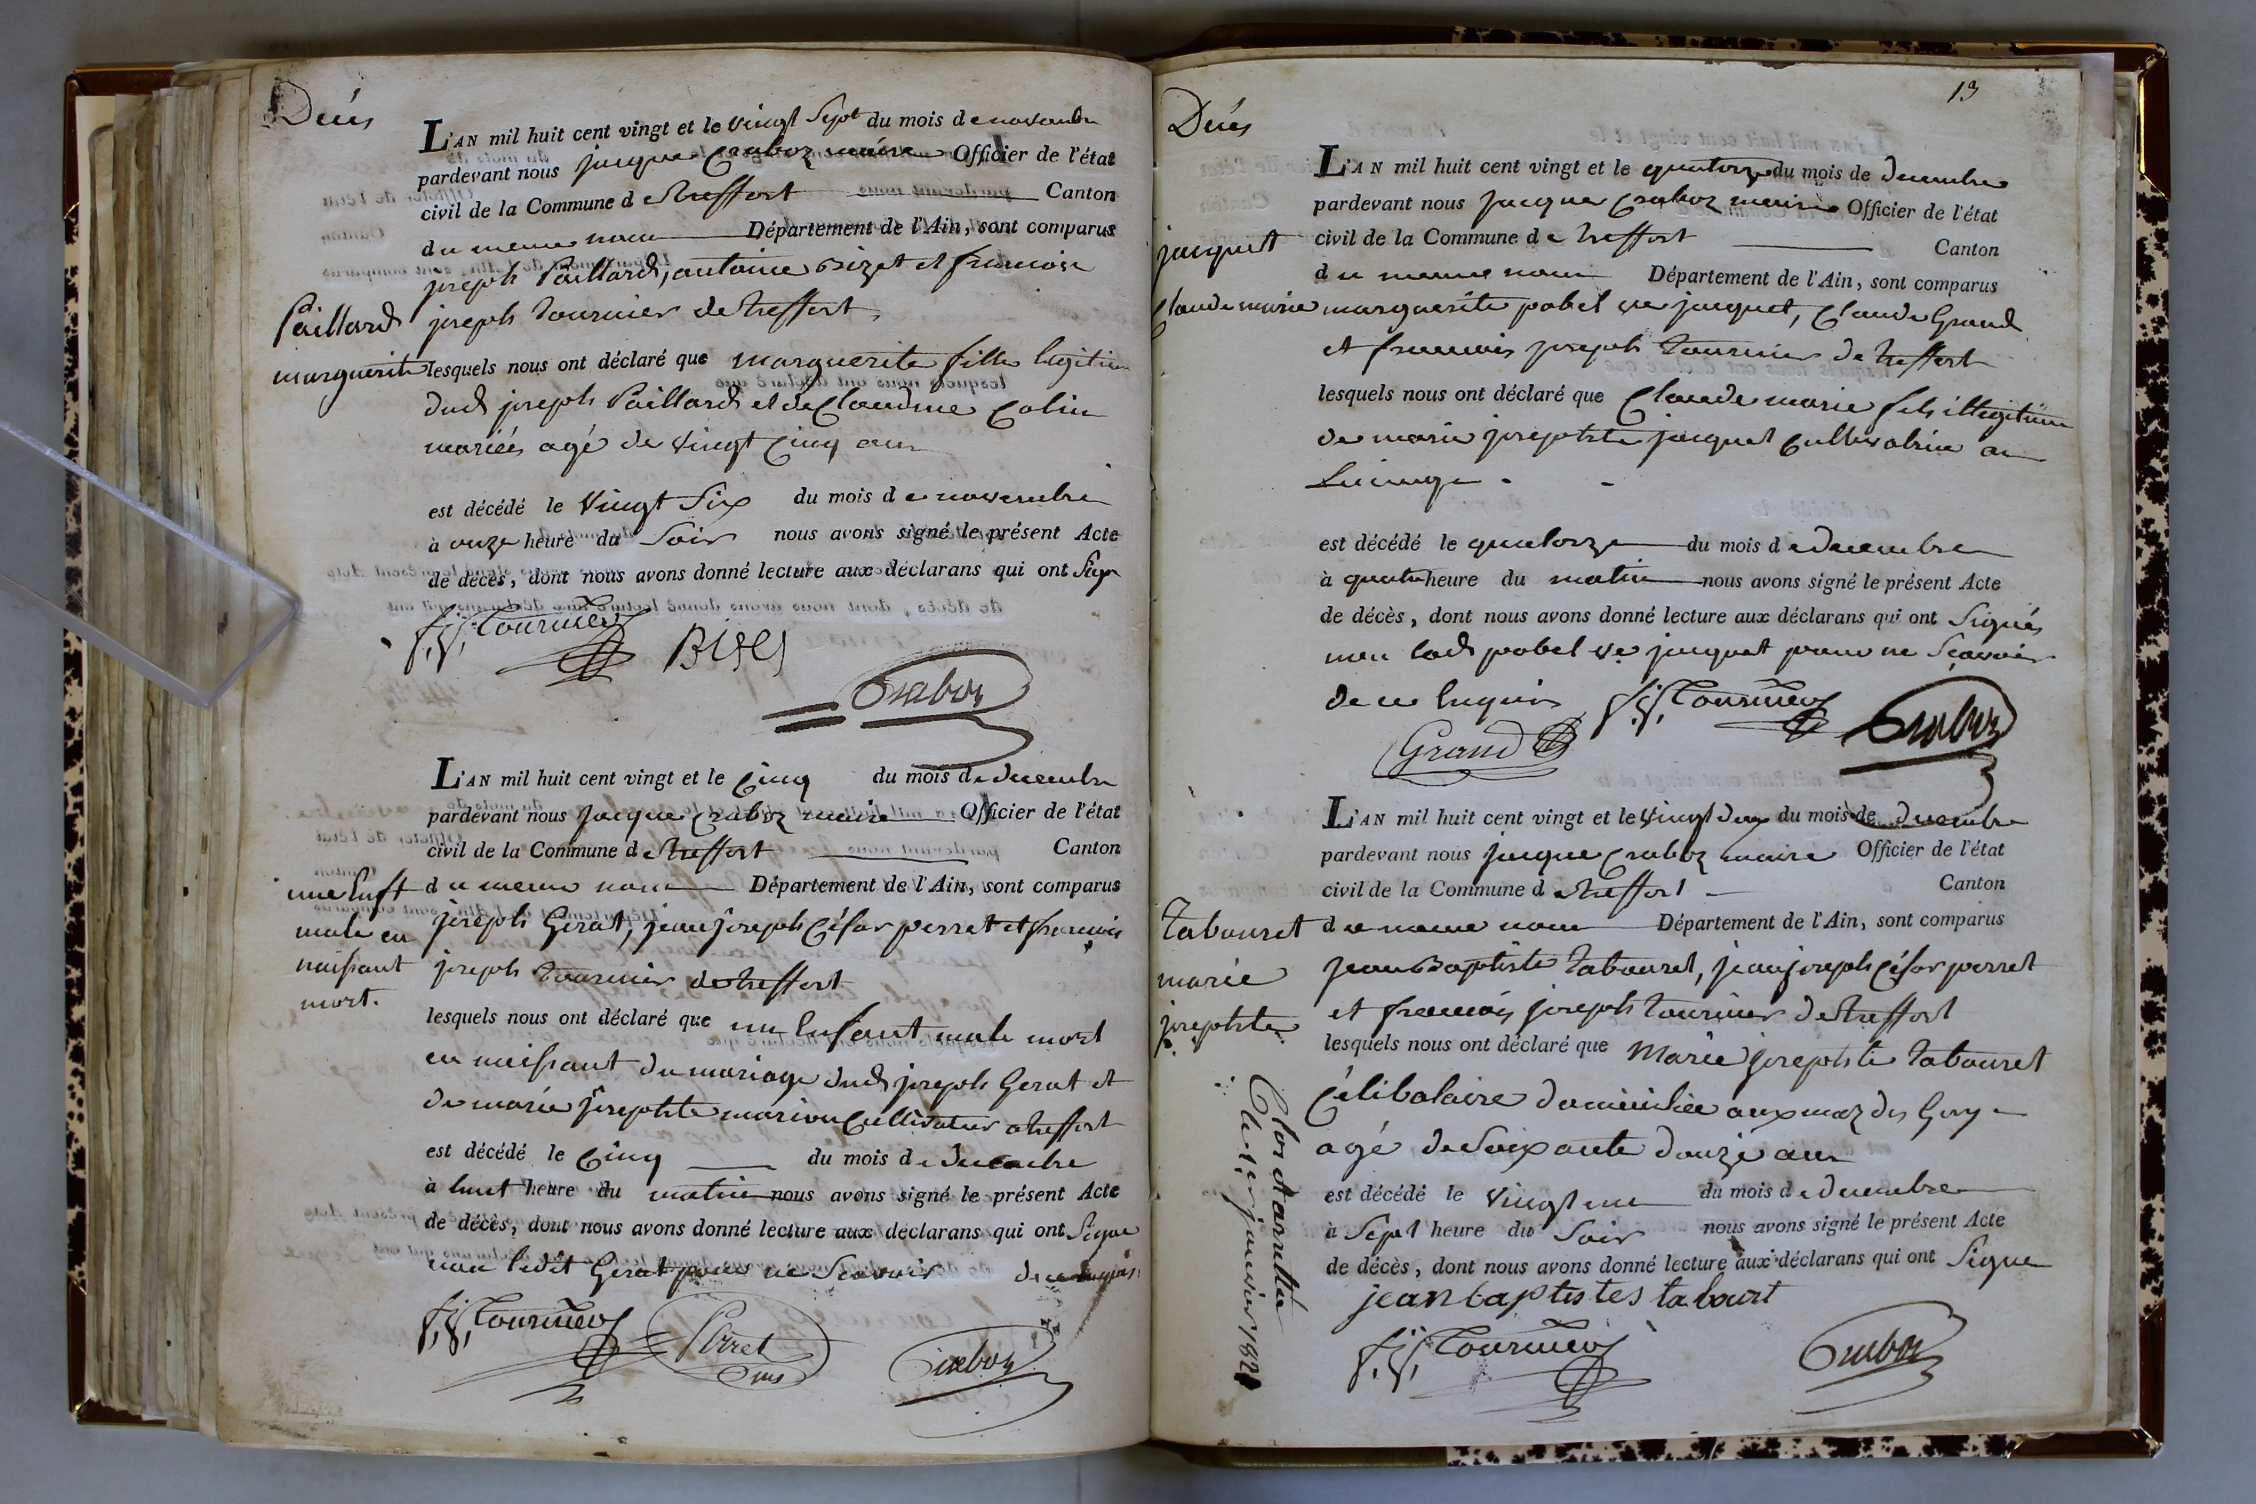 Décès
L'AN mil huit cent vingt et le vingt Sept du mois de novembre
pardevant nous jacque Craboz maire Officier de l'état
civil de la Commune de treffort Canton
du meme nom Département de l'Ain, sont comparus
joseph Paillard, antoine Bizet et francois
Paillard
marguerite
joseph tournier de treffort
lesquels nous ont déclaré que marguerite fille legitime
dud joseph Paillard et de Claudine Colin
mariés agé de vingt cinq ans
est décédé le vingt Six du mois de novembre
à onze heure du Soir nous avons signé le présent Acte
de décès, dont nous avons donné lecture aux déclarans qui ont Signe
f. j. Tournier Bizet
Craboz
L'AN mil huit cent vingt et le Cinq du mois de decembre
pardevant nous jacque Craboz maire Officier de l'état
civil de la Commune de treffort Canton
une Enft
male en
naissant
mort.
du meme nom Département de l'Ain, sont comparus
joseph Gerat, jean joseph César perret et francois
joseph tournier de treffort
lesquels nous ont déclaré que un Enfant male mort
en naissant du mariage dud joseph Gerat et
de marie josephte marion Cultivateur a treffort
est décédé le Cinq du mois de decembre
à huit heure du matin nous avons signé le présent Acte
de décès, dont nous avons donné lecture aux déclarans qui ont Signe
non ledit Gerat pour ne Scavoir de ce enquis
f. j. Tournier Perret
Craboz
13
Décès
L'AN mil huit cent vingt et le quatorze du mois de decembre
pardevant nous jacque Craboz maire Officier de l'état
civil de la Commune de treffort Canton
jacquet
Claude marie
du meme nom Département de l'Ain, sont comparus
marguerite pobel ve jacquet, Claude Grand
et francois joseph tournier de treffort
lesquels nous ont déclaré que Claude marie fils illegitime
de marie josephte jacquet Cultivatrice au
est décédé le quatorze du mois de decembre
à quatre heure du matin nous avons signé le présent Acte
de décès, dont nous avons donné lecture aux déclarans qui ont Signés
non lad pobel ve jacquet pour ne Scavoir
de ce Enquis f. j. Tournier Craboz
Grand
L'AN mil huit cent vingt et le vingt deux du mois de decembre
pardevant nous jacque Craboz maire Officier de l'état
civil de la Commune de treffort Canton
tabouret
marie
josephte
du meme nom Département de l'Ain, sont comparus
jean Baptiste tabouret, jean joseph César perret
et francois joseph tournier de treffort
lesquels nous ont déclaré que Marie josephte tabouret
Célibataire domiciliée aux maz des
agé de Soixante douze ans
est décédé le vingt un du mois de decembre
à Sept heure du Soir nous avons signé le présent Acte
de décès, dont nous avons donné lecture aux déclarans qui ont Signe
jean baptistes tabourt
f. j. Tournier Craboz
Clos et arretté
le 1er janvier 182